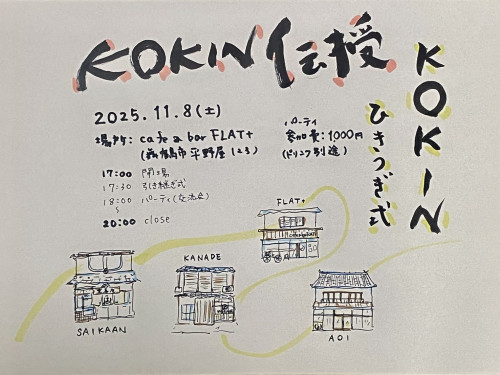 KOKIN伝授
KOKIN
ひきつぎ式
2025.11.8(土)
場所: cafe & bar FLAT+
市平野屋123)
パーティ
参加費:1000円
(ドリンク別途)
17:00 開場
17:30 引き継ぎ式
18:00 パーティ(交流会)
~
20:00 close
FLAT+
KANADE
SAIKAAN
AOI